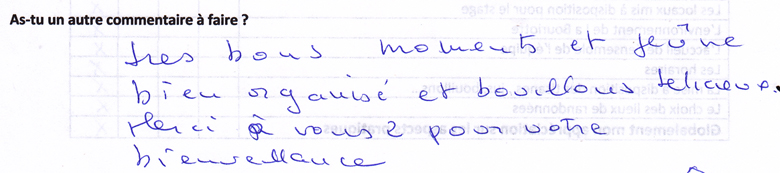 As-tu un autre commentaire à faire ?
très bons moments et jeûne
bien organisé et bouillons délicieux.
Merci à vous 2 pour votre
bienveillance